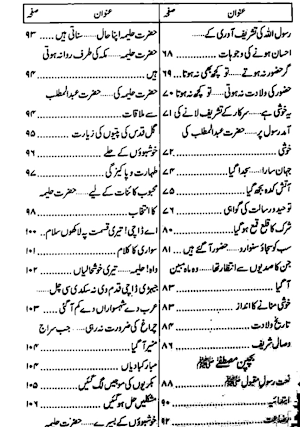 عنوان صفحہ
رسول اللہ کی تشریف آوری کے
احسان ہونے کی وجوہات ۶۸
گر حضور نہ ہوتے ...... تو کچھ بھی نہ ہوتا ۶۹
حضور کی ولادت نہ ہوتی تو کچھ نہ ہوتا ۷۰
خوشی ہی خوشی ...... سرکار کے تشریف لانے کی ۷۱
آمد رسول پر ...... حضرت عبدالمطلب کی
خوشی ۷۲
جہان سارا ...... سجدا گیا ۷۴
آتش کدہ بجھ گیا ۷۵
توحید و رسالت کی گواہی ۷۶
شرک کا قلع قمع ہو گیا ۸۰
سب کو سجاؤ سنوارو ...... حضور آ گئے ہیں ۸۱
جن کا صدیوں سے انتظار تھا ...... وہ ماہ مبین
آ گیا ۸۳
خوشی منانے کا انداز ۸۳
تاریخ ولادت ۸۴
وصال شریف ۸۶
بچپن مصطفےٰ ﷺ
نعت رسول مقبول ﷺ ۸۸
ابتدائیہ ۹۰
رضاعت ۹۲
عنوان صفحہ
حضرت حلیمہ اپنا حال ...... سناتی ہیں ۹۳
حضرت حلیمہ ...... مکہ کی طرف روانہ ہوتی
ہیں ۹۴
حضرت حلیمہ کی ...... حضرت عبدالمطلب
سے ملاقات ۹۴
گل قدس کی پتیوں کی زیارت ۹۵
خوشبوؤں کے حلے ۹۶
طہارت و پاکیزگی ۹۷
محبوب کائنات کے لیے ...... حضرت حلیمہ
کا انتخاب ۹۸
اے ڈاچی! تیری قسمت پہ لاکھوں سلام ۱۰۰
سواری کا کلام ۱۰۱
واہ! حلیمہ ...... تیری خوشحالیاں ۱۰۲
جیہڑی ڈاچی قدم دی نہ سکدی سی چل
عرب دے شہسواراں دے کم آ گئی ۱۰۳
چراغ کی ضرورت نہ رہی ...... جب سراج
منیر آ گیا ۱۰۴
مبارکبادیاں ۱۰۴
بکریوں کی موجیں لگ گئیں ۱۰۵
مشکلیں حل ہو گئیں ۱۰۶
خوشبوؤں کے بسیرے ...... حضرت حلیمہ